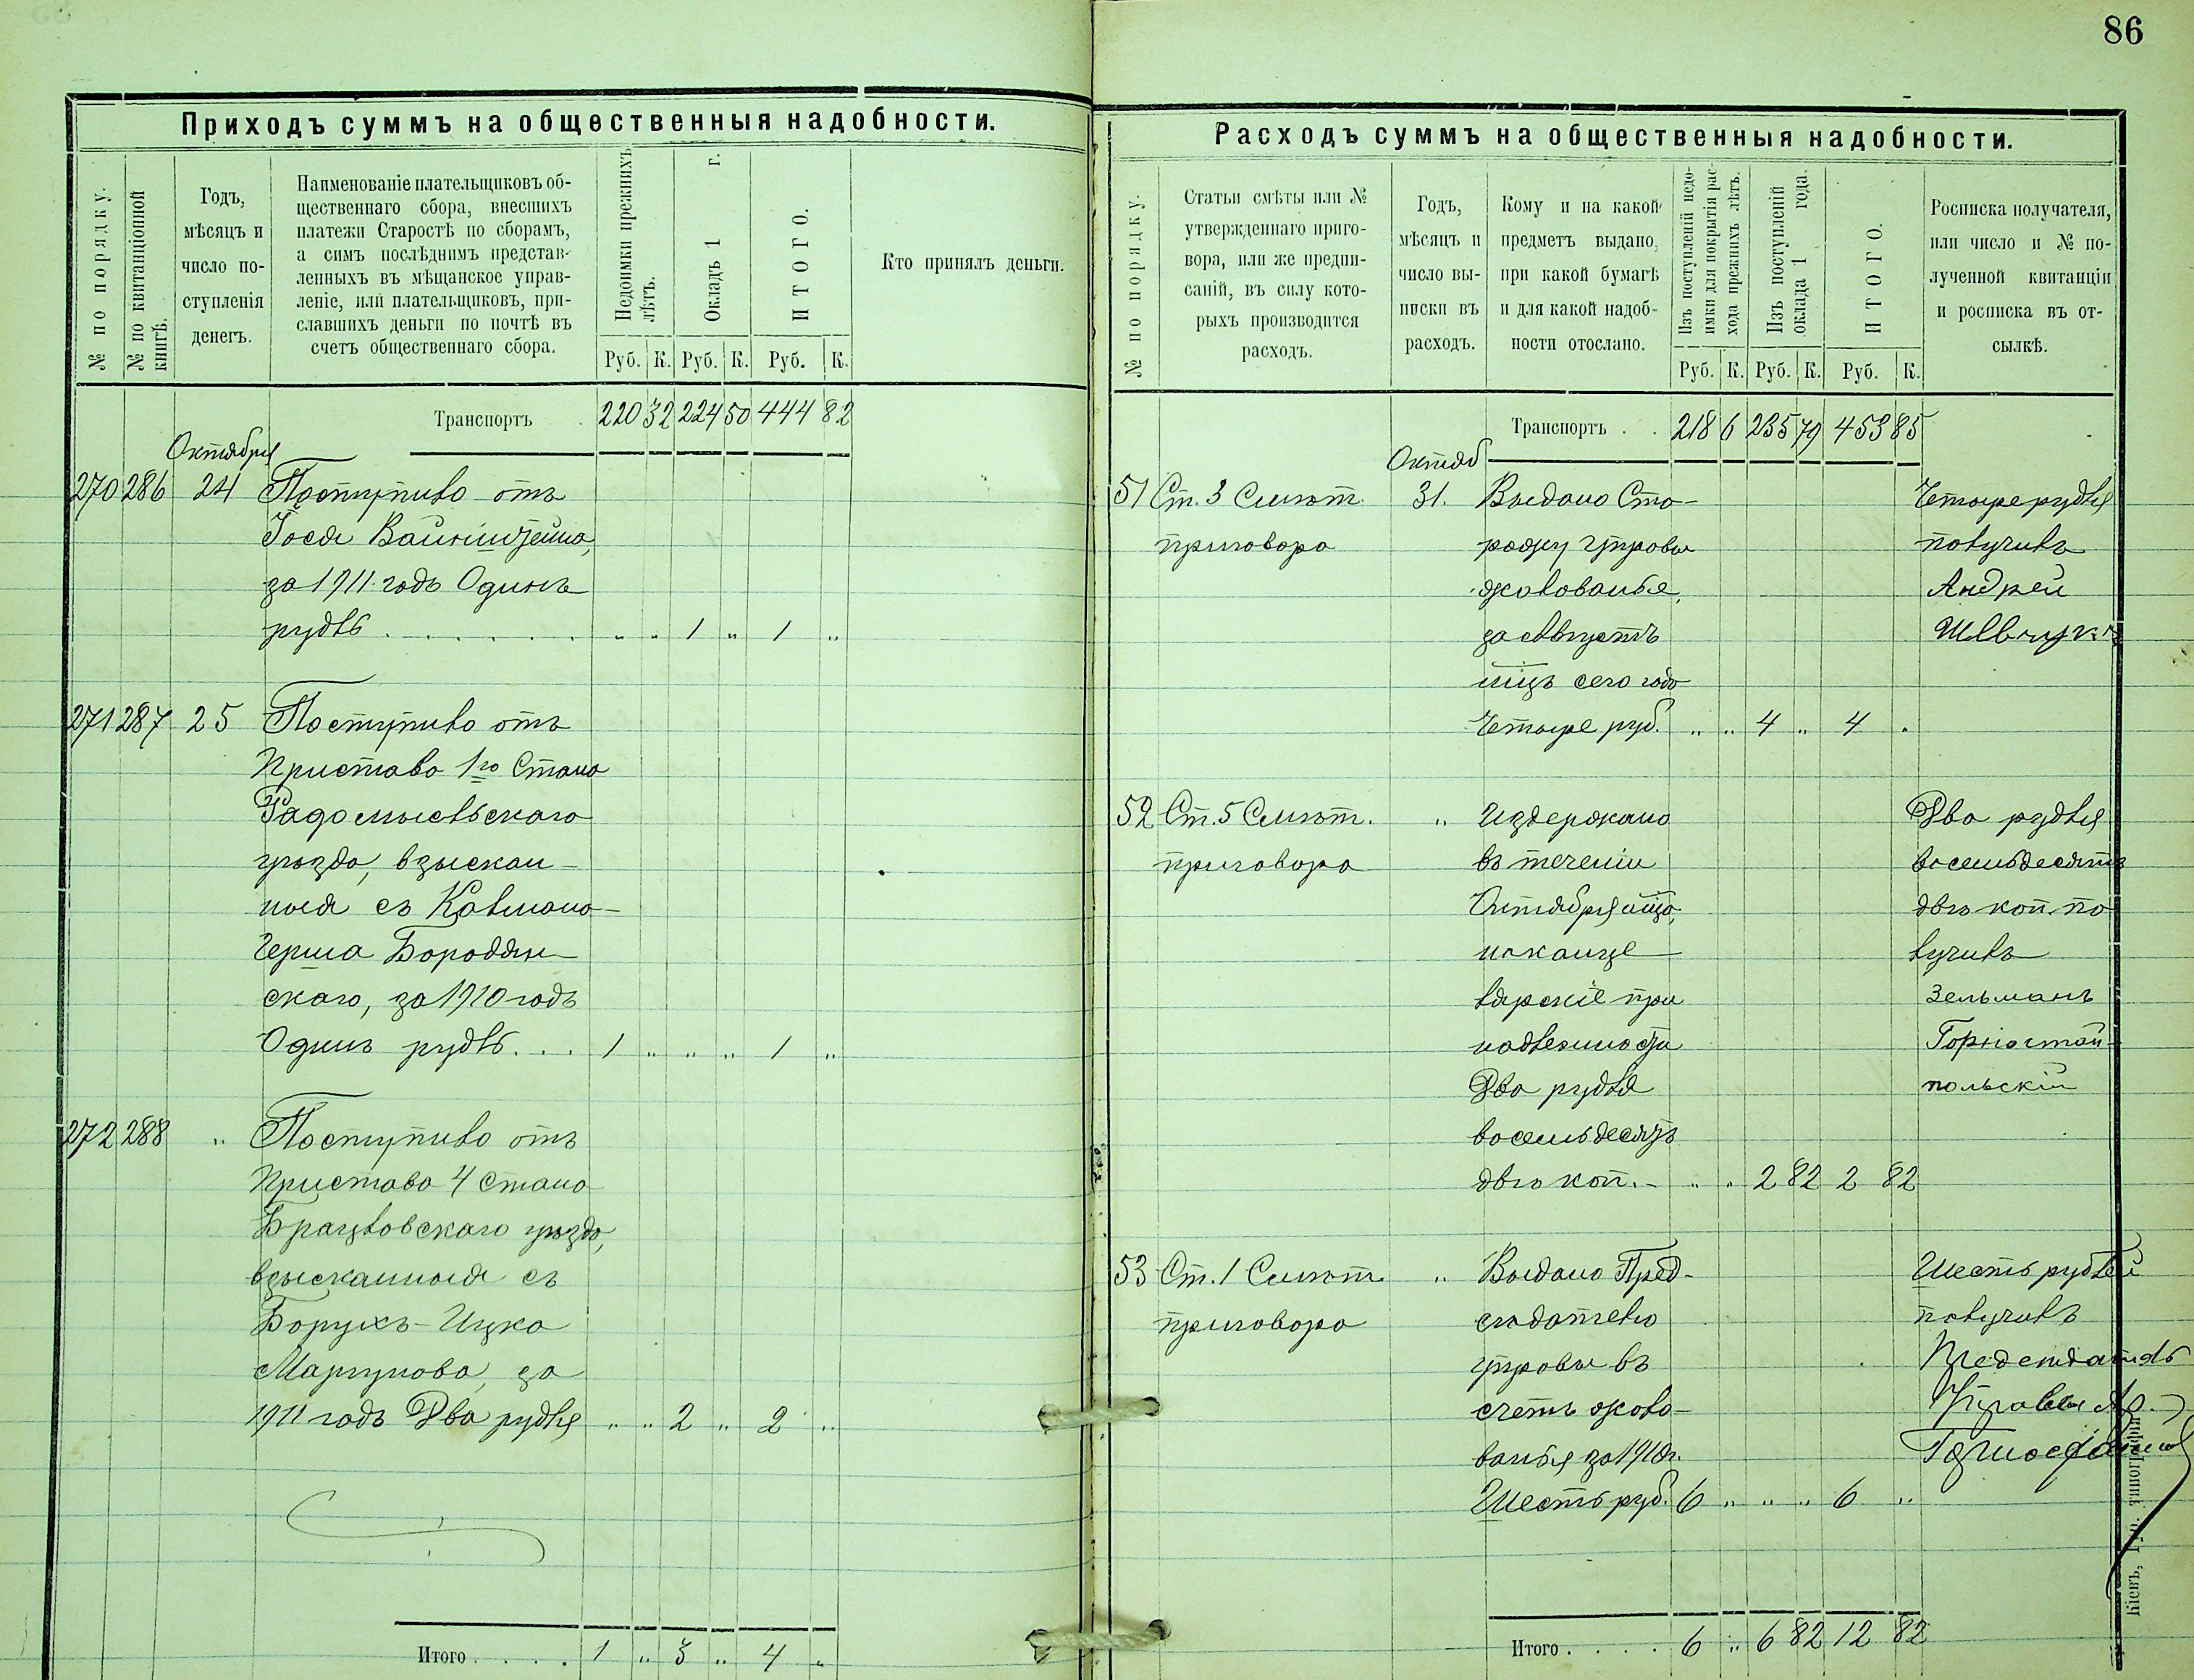 86
Приходъ суммъ на общественныя надобности.
№ по порядку.
№ по квитанціонной книгѣ.
Годъ,
мѣсяцъ и
число по-
ступленія
денегъ.
Наименованіе плательщиковъ об-
щественнаго сбора, внесшихъ
платежи Старостѣ по сборамъ,
а симъ послѣднимъ представ-
ленныхъ въ мѣщанское управ-
леніе, или плательщиковъ, при-
славшихъ деньги по почтѣ въ
счетъ общественнаго сбора.
Недоимки прежнихъ лѣтъ.
Окладъ 1 г.
ИТОГО.
Кто принялъ деньги.
Руб. К. Руб. К. Руб. К.
Транспортъ 220 32 224 50 444 82
Октября
270 286 24 Поступило отъ
Іося Вайнштейна,
за 1911 годъ Одинъ
рубль . . . . . . . " " 1 " 1 "
271 287 25 Поступило отъ
Пристава 1го Стана
Радомысльскаго
уѣзда, взыскан-
ныя съ Калмана-
Герша Бородян-
скаго, за 1910 годъ
Одинъ рубль . . . 1 " " " 1 "
272 288 " Поступило отъ
Пристава 4 Стана
Брацловскаго уѣзда,
взысканныя съ
Борухъ-Ицка
за
1911 годъ Два рубля " " 2 " 2 "
Итого . . . . 1 " 3 " 4 "
Расходъ суммъ на общественныя надобности.
№ по порядку.
Статьи смѣты или №
утвержденнаго приго-
вора, или же предпи-
саній, въ силу кото-
рыхъ производится
расходъ.
Годъ,
мѣсяцъ и
число вы-
писки въ
расходъ.
Кому и на какой
предметъ выдано,
при какой бумагѣ
и для какой надоб-
ности отослано.
Изъ поступленій недо-
имки для покрытія рас-
хода прежнихъ лѣтъ.
Изъ поступленій
оклада 1 года.
ИТОГО.
Росписка получателя,
или число и № по-
лученной квитанціи
и росписка въ от-
сылкѣ.
Руб. К. Руб. К. Руб. К.
Транспортъ . . 218 6 235 79 453 85
Октяб
51 Ст. 3 Смѣтн. 31. Выдано Сто- Четыре рубля
приговора рожу Управы получилъ
жалованье, Андрей
за Августъ Шевчукъ
мцъ сего года
Четыре руб. " " 4 " 4 "
52 Ст. 5 Смѣтн. " Издержано Два рубля
приговора въ теченіи восемьдесятъ
Октября мца, двѣ коп. по
на канце- лучилъ
лярскіе при Зельманъ
надлежности Горностай-
Два рубля польскій
восемьдесятъ
двѣ коп. - " " 2 82 2 82
53 Ст. 1 Смѣтн. " Выдано Пред- Шесть рублей
приговора сѣдателю получилъ
Управы въ Предсѣдатель
счетъ жало- Управы
ванья за 1910 г.
Шесть руб. 6 " " " 6 "
Итого . . . . 6 " 6 82 12 82
Кіевъ, типографія